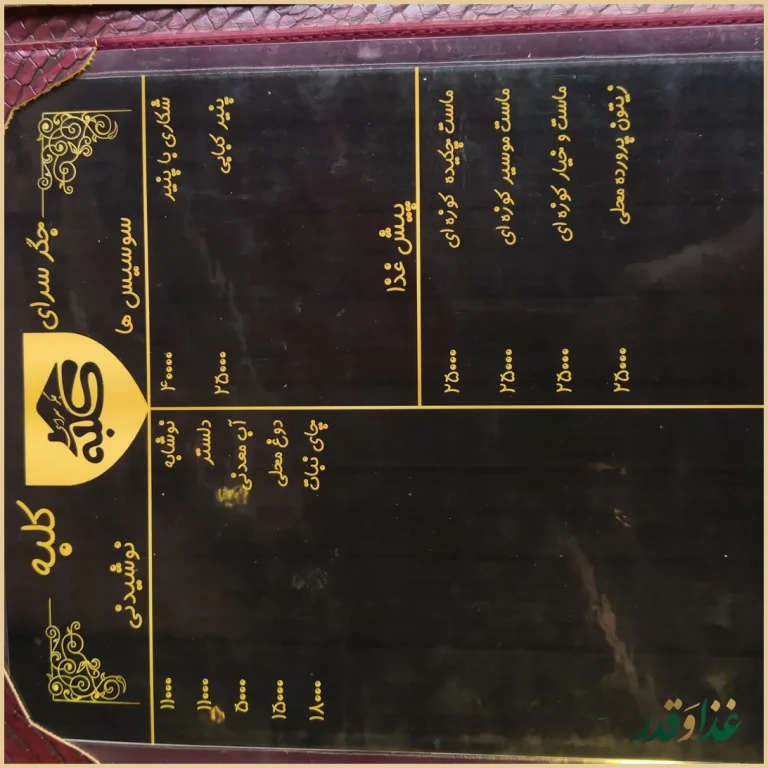 جگر سرای
کلبه
کلبه
سوسیس ها
شکاری با پنیر ۴۰۰۰۰
پنیر کبابی ۲۵۰۰۰
پیش غذا
ماست چکیده کوزه ای ۲۵۰۰۰
ماست موسیر کوزه ای ۲۵۰۰۰
ماست و خیار کوزه ای ۲۵۰۰۰
زیتون پرورده محلی ۲۵۰۰۰
نوشیدنی
نوشابه ۱۱۰۰۰
دلستر ۱۱۰۰۰
آب معدنی ۵۰۰۰
دوغ محلی ۱۵۰۰۰
چای نبات ۱۸۰۰۰
غذا و قدر